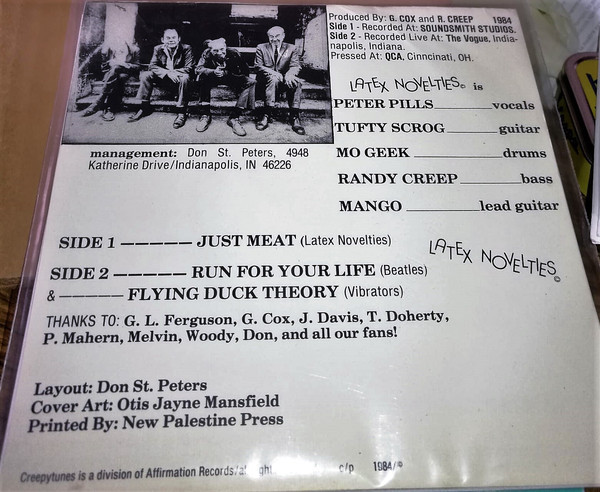 Produced By: G. COX and R. CREEP 1984
Side 1 - Recorded At: SOUNDSMITH STUDIOS.
Side 2 - Recorded Live At: The Vogue, India-
napolis, Indiana.
Pressed At: QCA, Cinncinati, OH.
LATEX NOVELTIES© is
PETER PILLS________vocals
TUFTY SCROG________guitar
MO GEEK____________drums
RANDY CREEP________bass
MANGO________lead guitar
management: Don St. Peters, 4948
Katherine Drive/Indianapolis, IN 46226
SIDE 1 ————— JUST MEAT (Latex Novelties)
SIDE 2 ————— RUN FOR YOUR LIFE (Beatles)
& ————— FLYING DUCK THEORY (Vibrators)
LATEX NOVELTIES©
THANKS TO: G. L. Ferguson, G. Cox, J. Davis, T. Doherty,
P. Mahern, Melvin, Woody, Don, and all our fans!
Layout: Don St. Peters
Cover Art: Otis Jayne Mansfield
Printed By: New Palestine Press
Creepytunes is a division of Affirmation Records/ c/p 1984/©